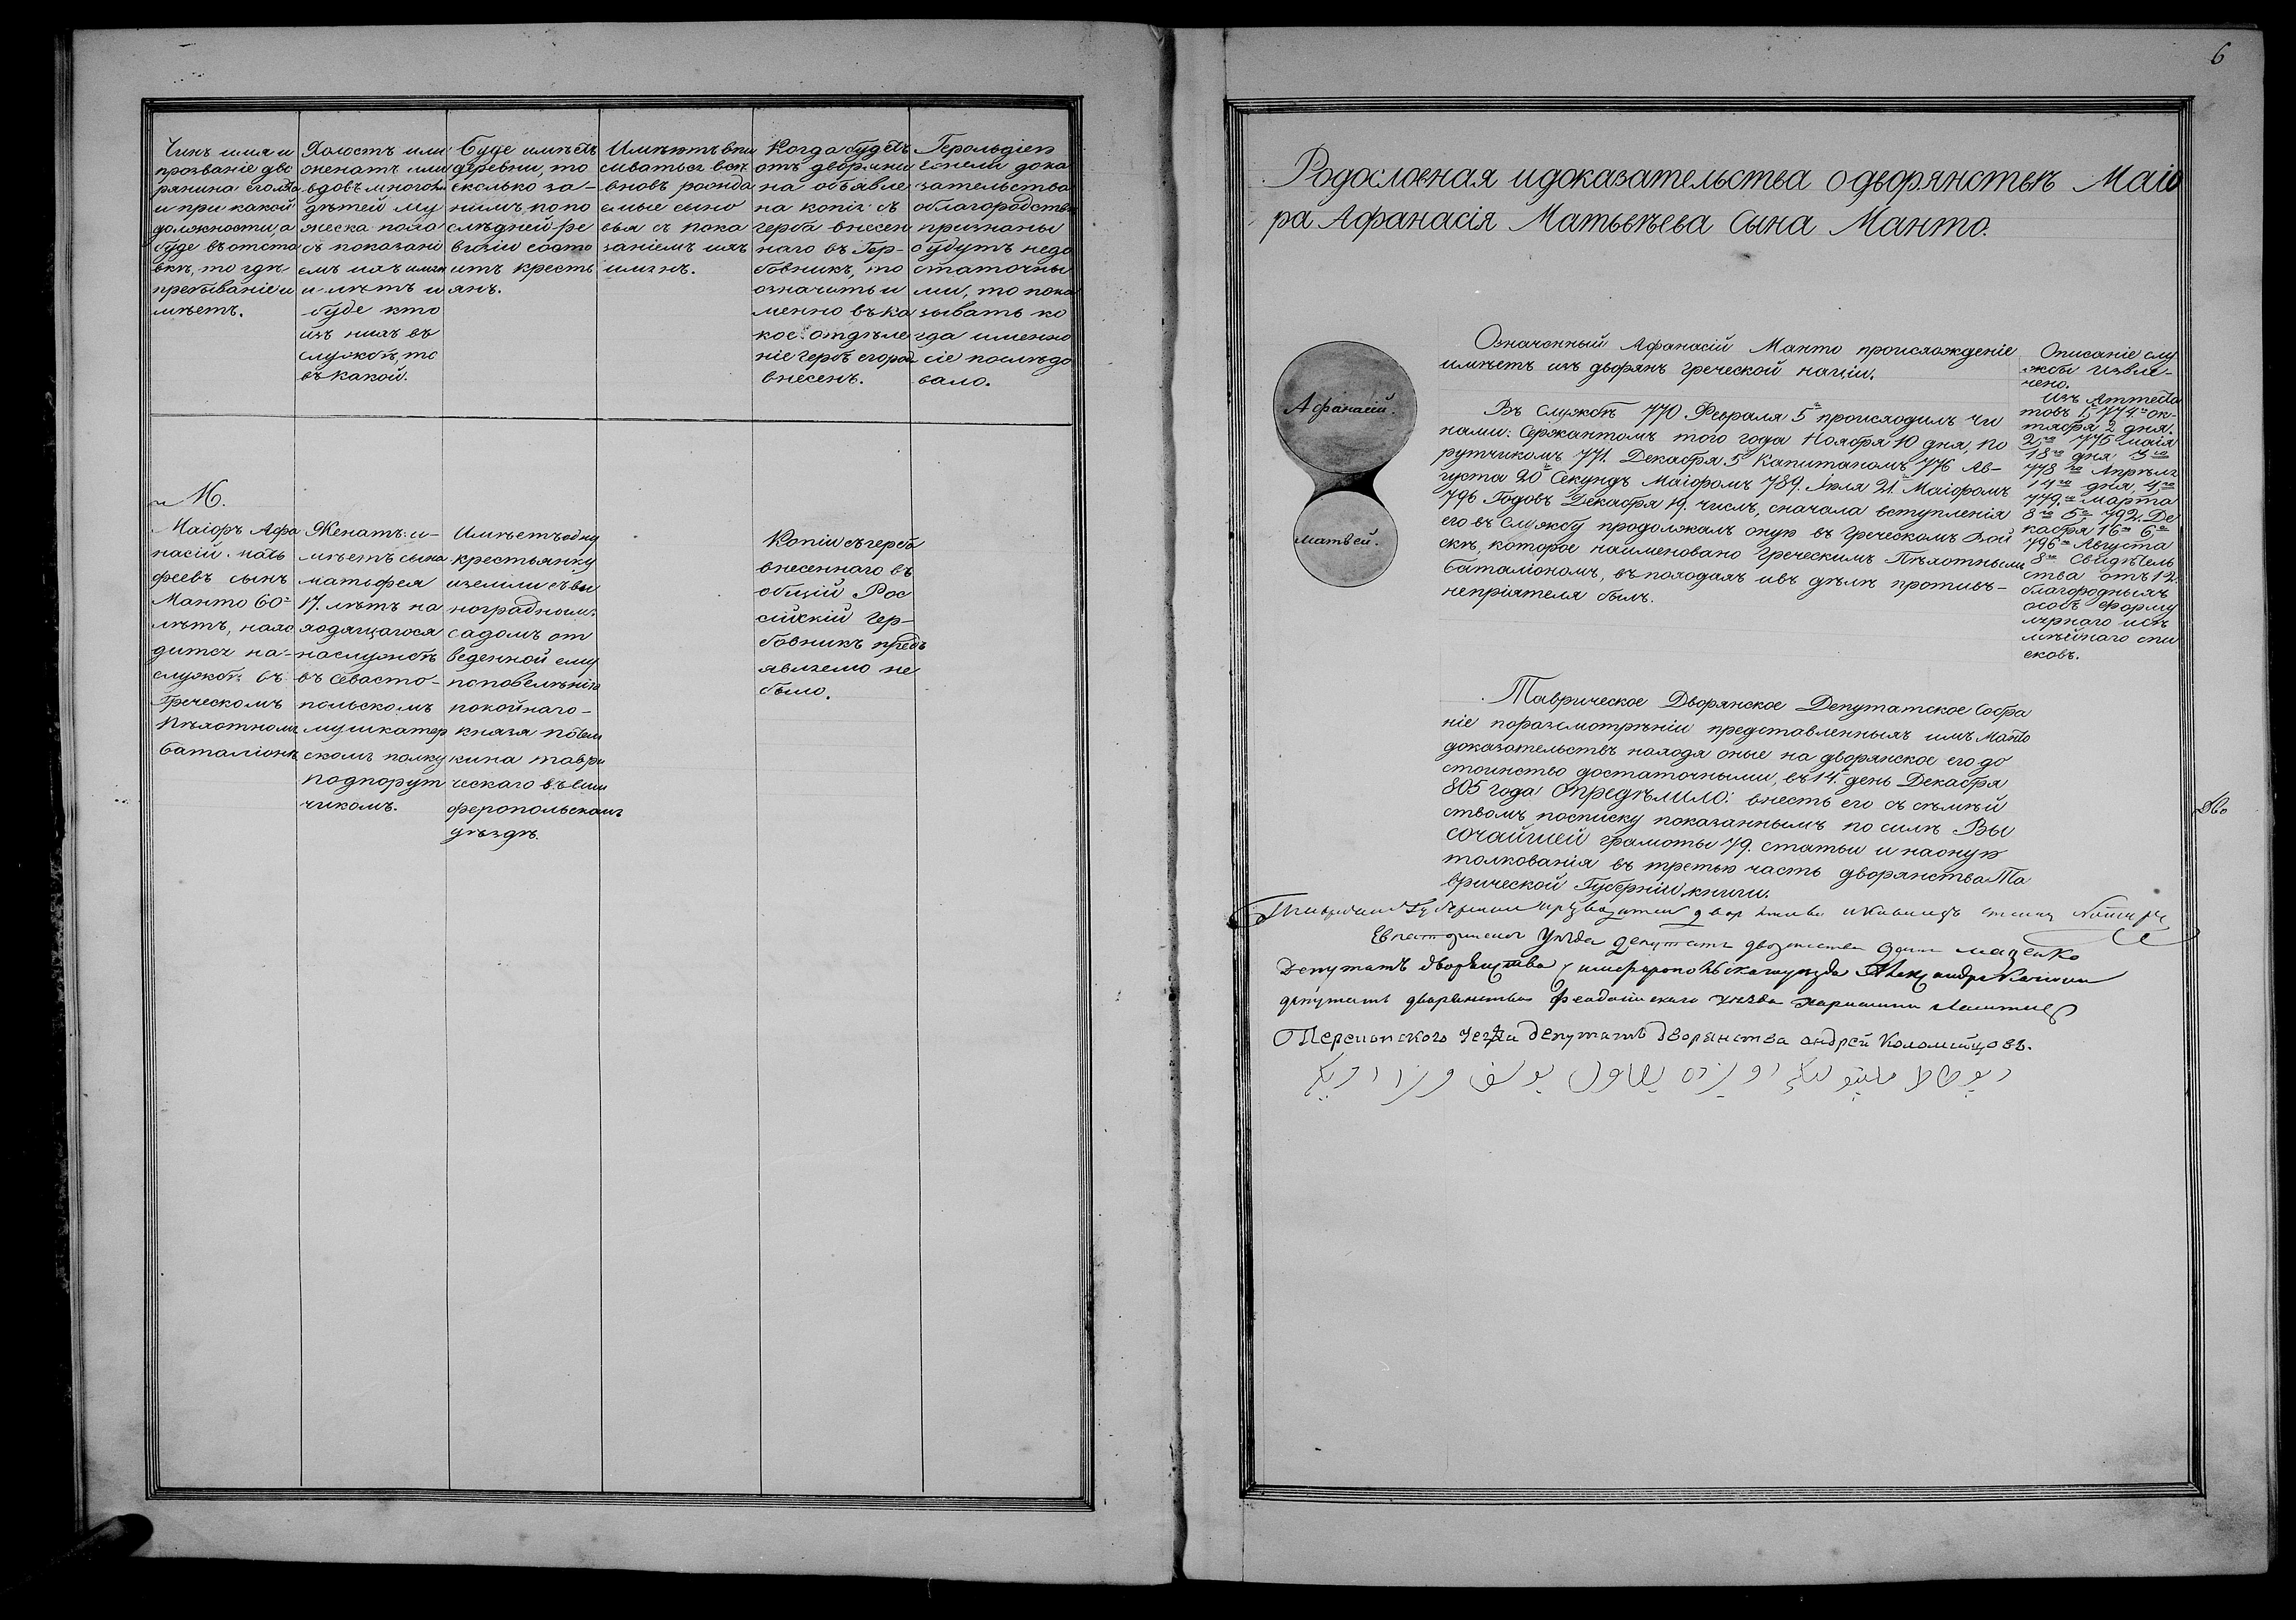 Чинъ имя и
прозваніе дво
рянина его лѣта
и при какой
должности, а
буде въ отста
вкѣ, то гдѣ
пребываніе и
мѣетъ.
Холостъ или
женатъ или
вдовъ много ли
дѣтей му
жеска пола
съ показані
емъ ихъ имян
и лѣтъ и
буде кто
изъ нихъ въ
службѣ, то
въ какой.
Буде имѣетъ
деревни, то
сколько за-
нимъ, по по
слѣдней ре
визіи состо
итъ кресть
янъ.
Имѣютъ впи
сываться вся
вновь рожда
емые сыно
вья съ пока
заніемъ ихъ
имянъ.
Когда будетъ
отъ дворяни
на объявле
на копія съ
герба внесен
наго въ Гер-
бовникъ, то
означить и
менно въ ка
кое отдѣле
ніе гербъ его рода
внесенъ.
Герольдіею
Если дока
зательства
о благородствѣ
признаны
будутъ недо
статочны
ми, то пока
зывать ко
гда именно
сіе послѣдо
вало.
М.
Маіоръ Афа
насій Мать
феевъ сынъ
Манто 60
лѣтъ, нахо
дится на-
службѣ въ
Греческомъ
Пѣхотномъ
баталіонѣ
Женатъ: и-
мѣетъ сына
Матьфея
17. лѣтъ на
ходящагося
на службѣ
въ Севасто-
польскомъ
мушкатер
скомъ полку
подпорут
чикомъ.
Имѣетъ одну
крестьянку
и землю съ ви
нограднымъ
садомъ от
веденной ему
по повелѣнію
покойнаго-
князя Потем
кина таври
ческаго въ Сим
феропольскомъ
уѣздѣ.
Копіи съ герба
внесеннаго въ
общій Рос
сійскій Гер-
бовникъ предъ
явлемо не
было.
6
Родословная и доказательства о дворянствѣ Маіо
ра Афанасія Матьвѣева Сына Манто.
Афанасій.
Матвей.
Означенный Афанасій Манто происхожденіе
имѣетъ изъ дворянъ греческой націи.
Въ Службѣ 770 Февраля 5 происходилъ чи
нами: Сержантомъ того года Ноября 10 дня, по
рутчикомъ 771. Декабря 5 Капитаномъ 776 Ав-
густа 20 Секундъ Маіоромъ 789. Іюля 21. Маіоромъ
796 Годовъ Декабря 19. числъ, сначала вступленія
его въ Службу продолжалъ оную въ Греческомъ Вой
скѣ, которое наименовано Греческимъ Пѣхотнымъ
баталіономъ, въ походахъ и въ дѣлѣ противъ-
непріятеля былъ.
Описаніе слу
жбы извле-
чено.
Изъ Аттеста
товъ 1. 774. ок-
тября 2 дня.
2 775 маія
18 дня 3
778 Апрѣля
14 дня, 4
779 марта
8 5 792. Де
кабря 16 6
796 Августа
8 Свидѣтель
ства отъ 12.
благородныхъ
особъ формулярнаго и съ
мѣйнаго спи
сковъ.
Таврическое Дворянское Депутатское Собра
ніе по разсмотрѣніи представленныхъ имъ Манто
доказательствъ находя оные на дворянское его до
стоинство достаточными, въ 14. день Декабря
805 года Опредѣлило: внесть его съ сѣмей
ствомъ по списку показаннымъ по силѣ Вы
сочайшей грамоты 79. статьи и на оную
толкованія въ третью часть дворянства Та
врической Губерніи книги.
Дво
Евпаторискаго Уезда депутатъ дворянства
Депутатъ дворянства Симферопольскаго уезда Александръ
депутатъ дворянства Феодосійскаго уезда
Перекопского уезда депутатъ дворянства андрей Коломийцовъ.